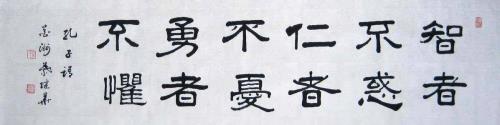 智者
不惑
仁者
不憂
勇者
不懼
孔子語